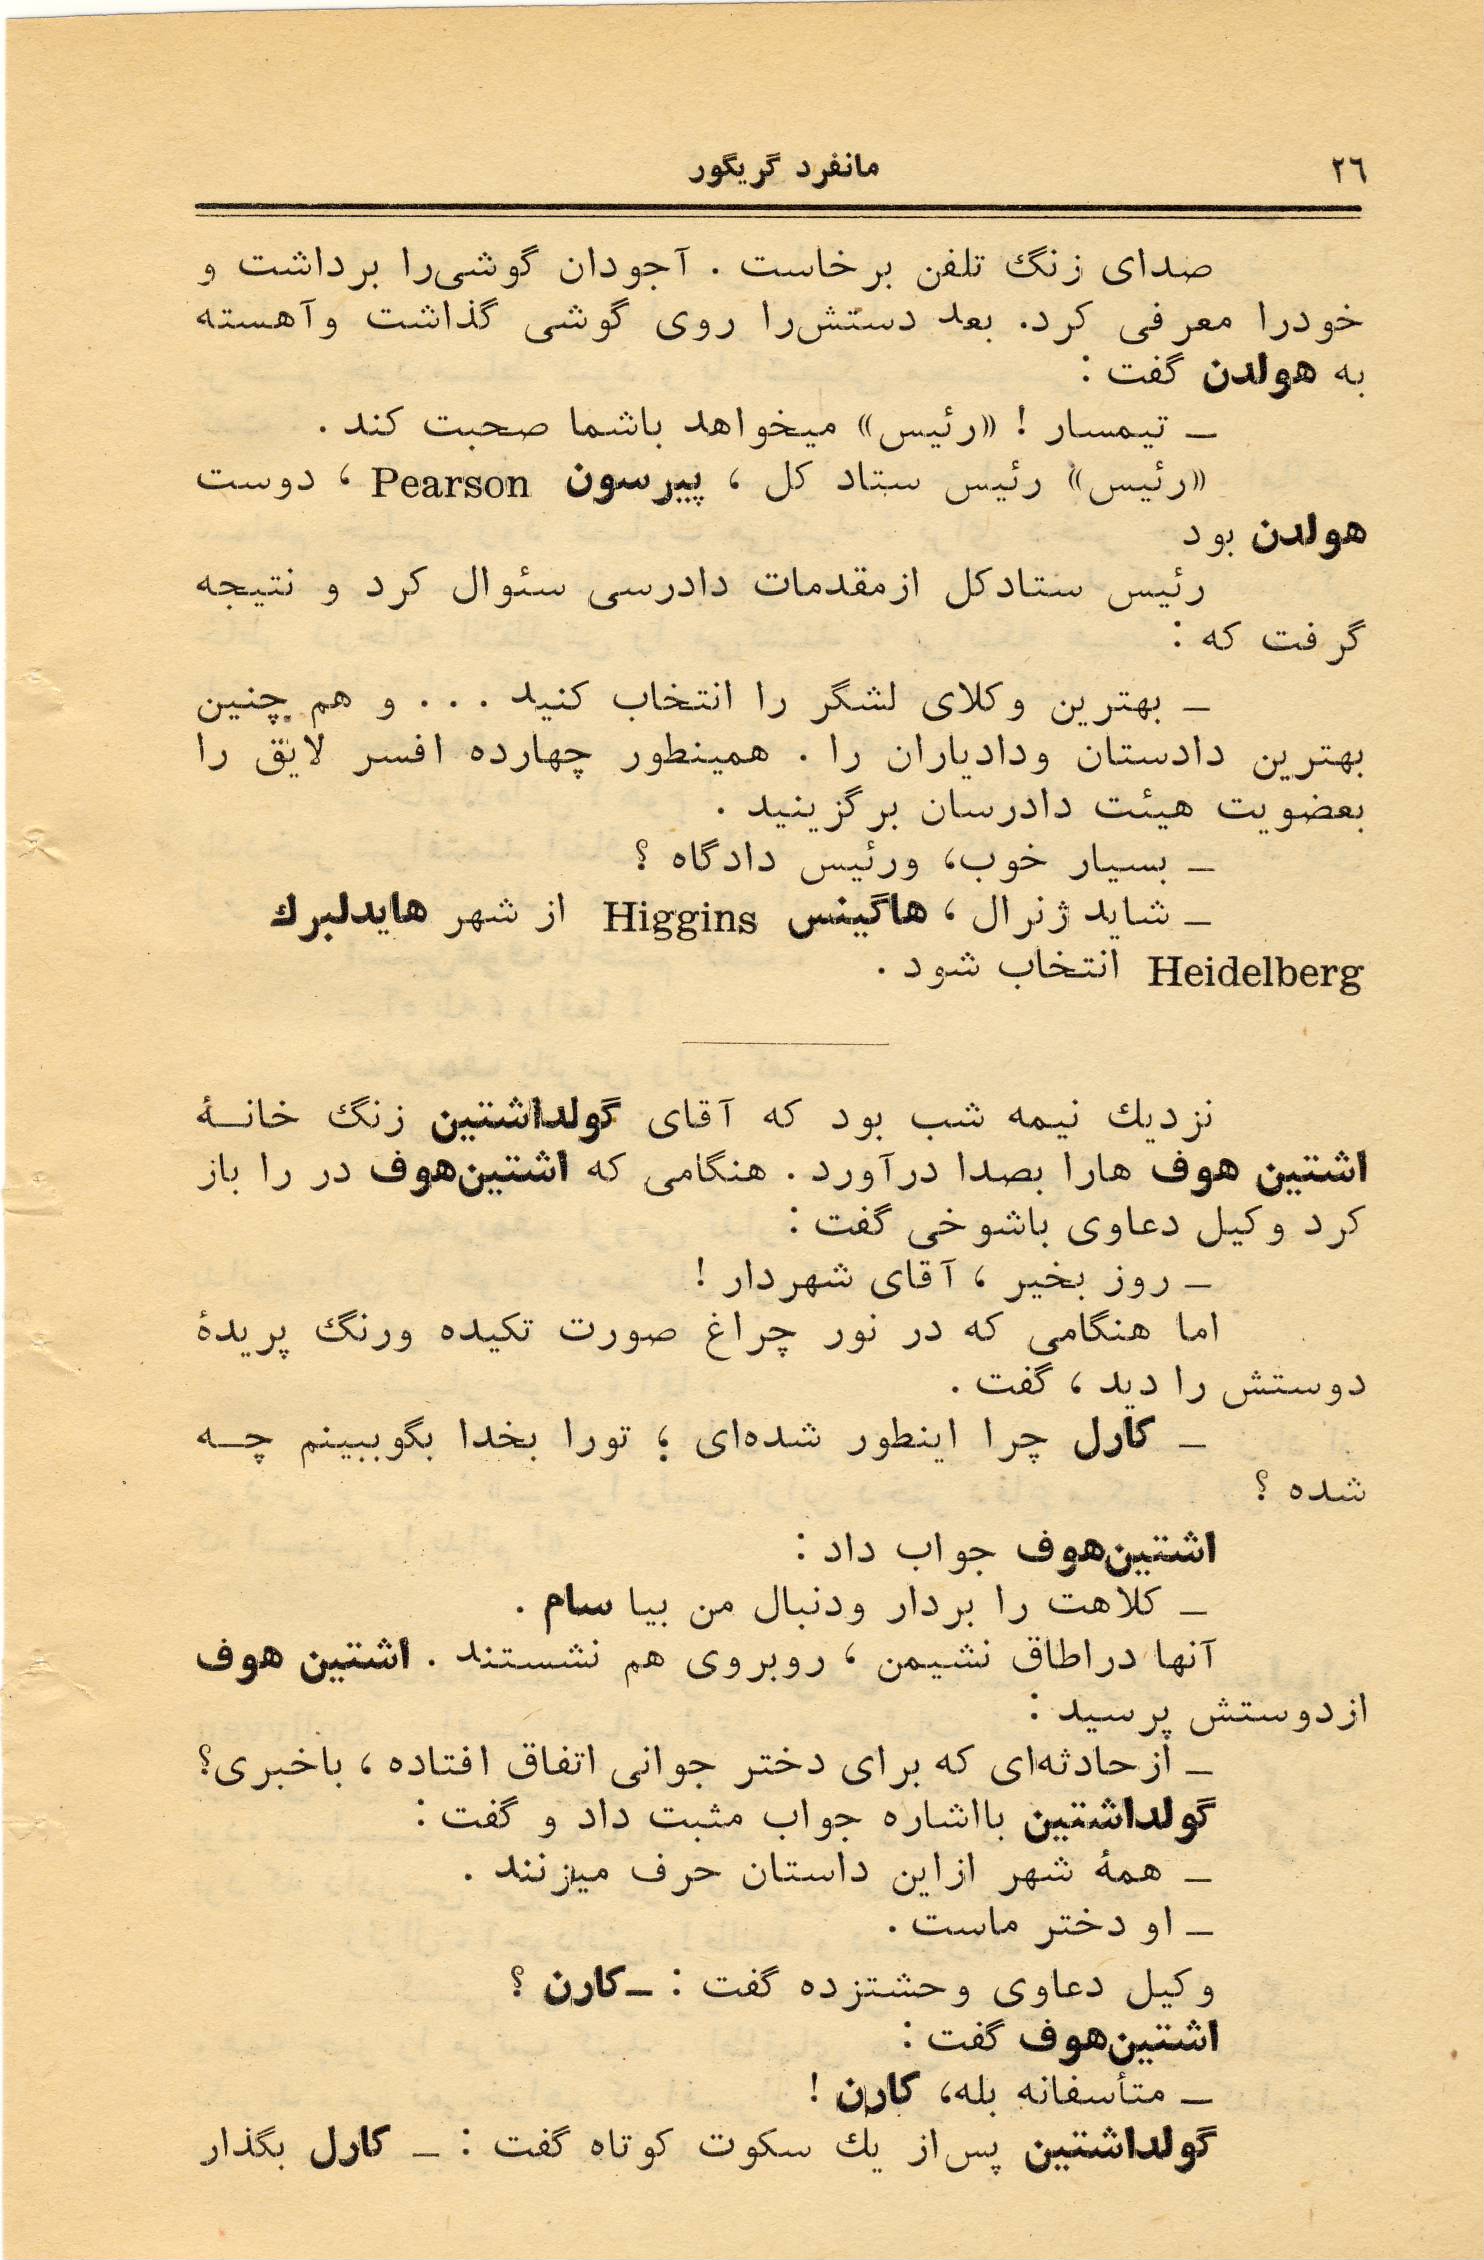 ۲۶
مانفرد گریگور
صدای زنگ تلفن برخاست . آجودان گوشی‌را برداشت و
خودرا معرفی کرد. بعد دستش‌را روی گوشی گذاشت وآهسته
به هولدن گفت :
ـ تیمسار ! «رئیس» میخواهد باشما صحبت کند .
«رئیس» رئیس ستاد کل ، پیرسون Pearson ، دوست
هولدن بود
رئیس ستادکل ازمقدمات دادرسی سئوال کرد و نتیجه
گرفت که :
ـ بهترین وکلای لشگر را انتخاب کنید . . . و هم چنین
بهترین دادستان ودادیاران را . همینطور چهارده افسر لایق را
بعضویت هیئت دادرسان برگزینید .
ـ بسیار خوب، ورئیس دادگاه ؟
ـ شاید ژنرال ، هاگینس Higgins از شهر هایدلبرك
Heidelberg انتخاب شود .
نزدیك نیمه شب بود که آقای گولداشتین زنگ خانـهٔ
اشتین هوف هارا بصدا درآورد . هنگامی که اشتین‌هوف در را باز
کرد وکیل دعاوی باشوخی گفت :
ـ روز بخیر ، آقای شهردار !
اما هنگامی که در نور چراغ صورت تکیده ورنگ پریدهٔ
دوستش را دید ، گفت .
ـ کارل چرا اینطور شده‌ای ؛ تورا بخدا بگوببینم چـه
شده ؟
اشتین‌هوف جواب داد :
ـ کلاهت را بردار ودنبال من بیا سام .
آنها دراطاق نشیمن ، روبروی هم نشستند . اشتین هوف
ازدوستش پرسید :
ـ ازحادثه‌ای که برای دختر جوانی اتفاق افتاده ، باخبری؟
گولداشتین بااشاره جواب مثبت داد و گفت :
ـ همهٔ شهر ازاین داستان حرف میزنند .
ـ او دختر ماست .
وکیل دعاوی وحشتزده گفت : ـ کارن ؟
اشتین‌هوف گفت :
ـ متأسفانه بله، کارن !
گولداشتین پس‌از یك سکوت کوتاه گفت : ـ کارل بگذار